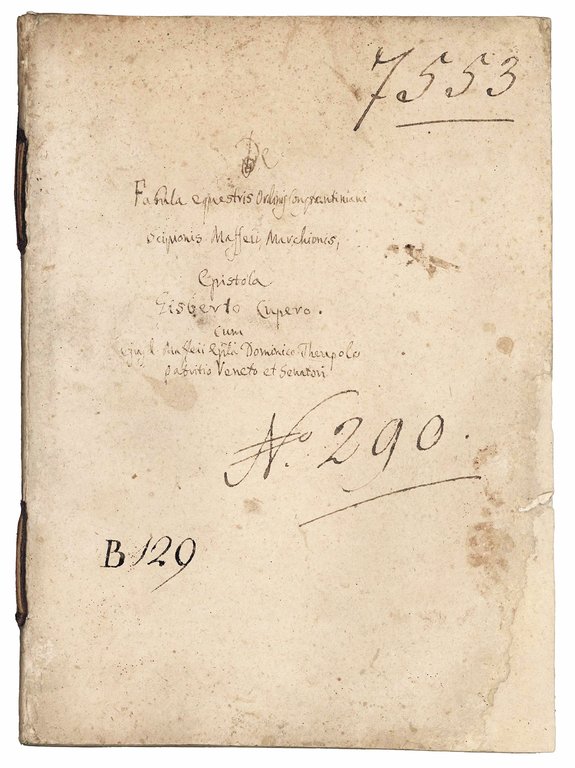 7553
De
Fabula equestris Ordinis Constantiniani
Scipionis Maffeii Marchionis,
Epistola
Gisberto Cupero.
cum
Maffeii Dominico Theupolo
patritio Veneto et Senatori
No. 290.
B129